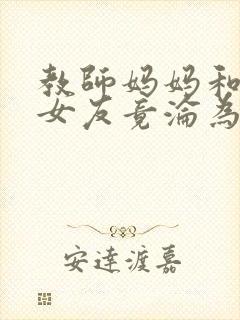 教師妈妈和
女友竟淪為
安達渡嘉